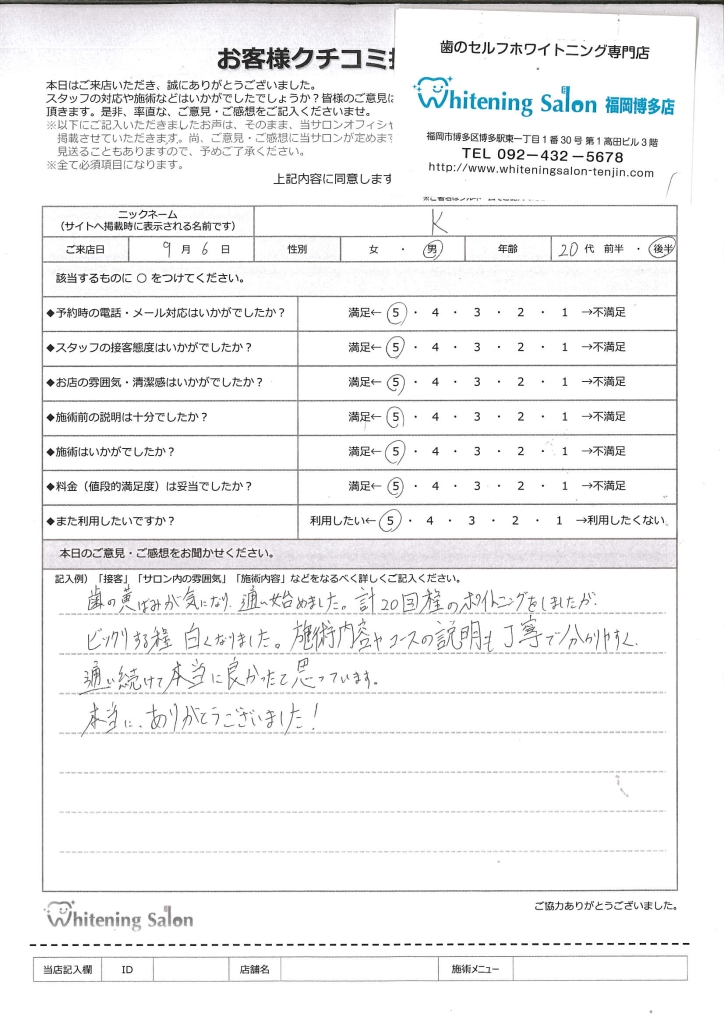 お客様クチコミ
本日はご来店いただき、誠にありがとうございました。
スタッフの対応や施術などはいかがでしたでしょうか？皆様のご意見は
頂きます。是非、率直な、ご意見・ご感想をご記入くださいませ。
※以下にご記入いただきましたお声は、そのまま、当サロンオフィシャ
掲載させていただきます。尚、ご意見・ご感想に当サロンが定めます
見送ることもありますので、予めご了承ください。
※全て必須項目になります。
上記内容に同意します
歯のセルフホワイトニング専門店
Whitening Salon 福岡博多店
福岡市博多区博多駅東一丁目1番30号 第1高田ビル3階
TEL 092-432-5678
http://www.whiteningsalon-tenjin.com
ニックネーム
（サイトへ掲載時に表示される名前です）
K
ご来店日 9月 6日 性別 女 ・ 男 年齢 20代 前半 ・ 後半
該当するものに ○ をつけてください。
◆予約時の電話・メール対応はいかがでしたか？ 満足← 5 ・ 4 ・ 3 ・ 2 ・ 1 →不満足
◆スタッフの接客態度はいかがでしたか？ 満足← 5 ・ 4 ・ 3 ・ 2 ・ 1 →不満足
◆お店の雰囲気・清潔感はいかがでしたか？ 満足← 5 ・ 4 ・ 3 ・ 2 ・ 1 →不満足
◆施術前の説明は十分でしたか？ 満足← 5 ・ 4 ・ 3 ・ 2 ・ 1 →不満足
◆施術はいかがでしたか？ 満足← 5 ・ 4 ・ 3 ・ 2 ・ 1 →不満足
◆料金（値段的満足度）は妥当でしたか？ 満足← 5 ・ 4 ・ 3 ・ 2 ・ 1 →不満足
◆また利用したいですか？ 利用したい← 5 ・ 4 ・ 3 ・ 2 ・ 1 →利用したくない
本日のご意見・ご感想をお聞かせください。
記入例）「接客」「サロン内の雰囲気」「施術内容」などをなるべく詳しくご記入ください。
歯の黄ばみが気になり、通い始めました。計20回程のホワイトニングをしましたが、
ビックリする程 白くなりました。施術内容やコースの説明も丁寧で分かりやすく、
通い続けて本当に良かったと思っています。
本当に、ありがとうございました！
Whitening Salon
ご協力ありがとうございました。
当店記入欄 ID 店舗名 施術メニュー